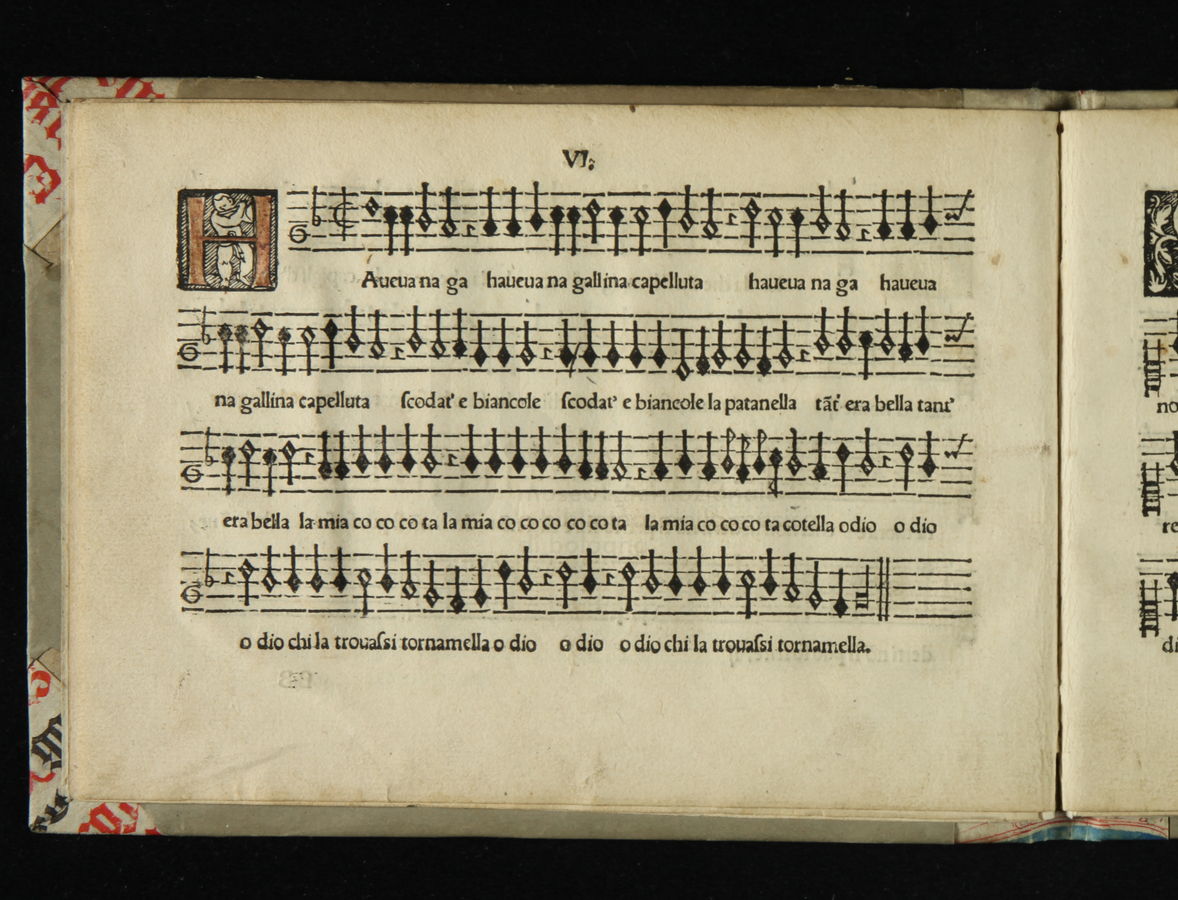 VI.
HAueua na ga haueua na gallina capelluta haueua na ga haueua
na gallina capelluta ſcodat' e biancole ſcodat' e biancole la patanella tãt' era bella tant'
era bella la mia co co co ta la mia co co co co co ta la mia co co co ta cotella o dio o dio
o dio chi la trouaſsi tornamella o dio o dio o dio chi la trouaſsi tornamella.